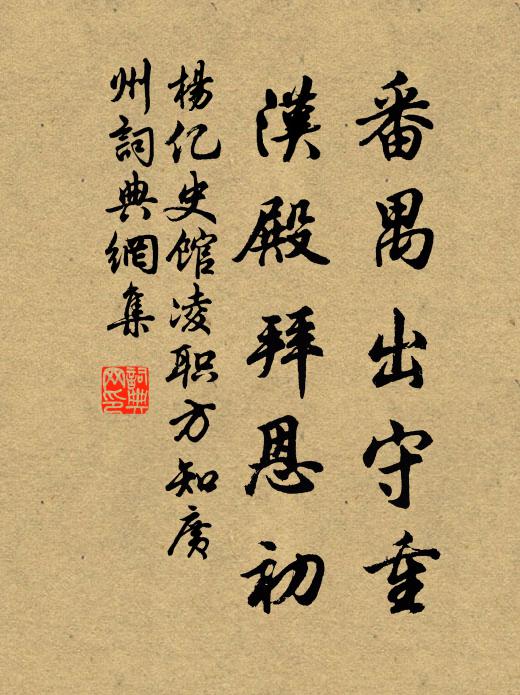 番禺出守重
漢殿拜恩初
楊亿史館凌职方知廣
州詞典網集
詞典
网印